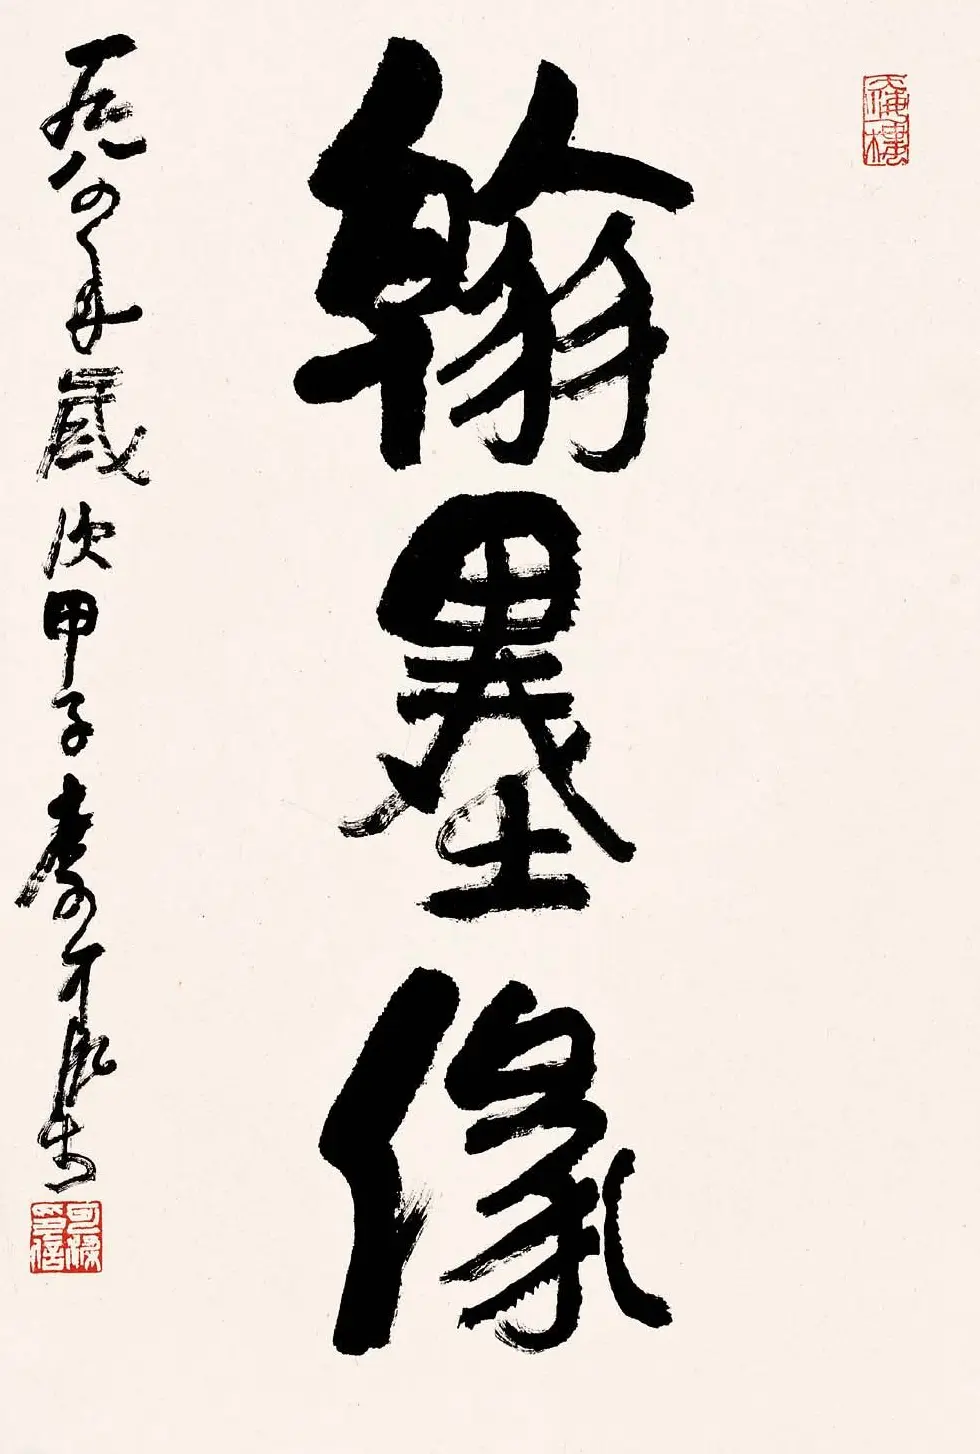 翰墨緣
一九八四年歲次甲子李可染书